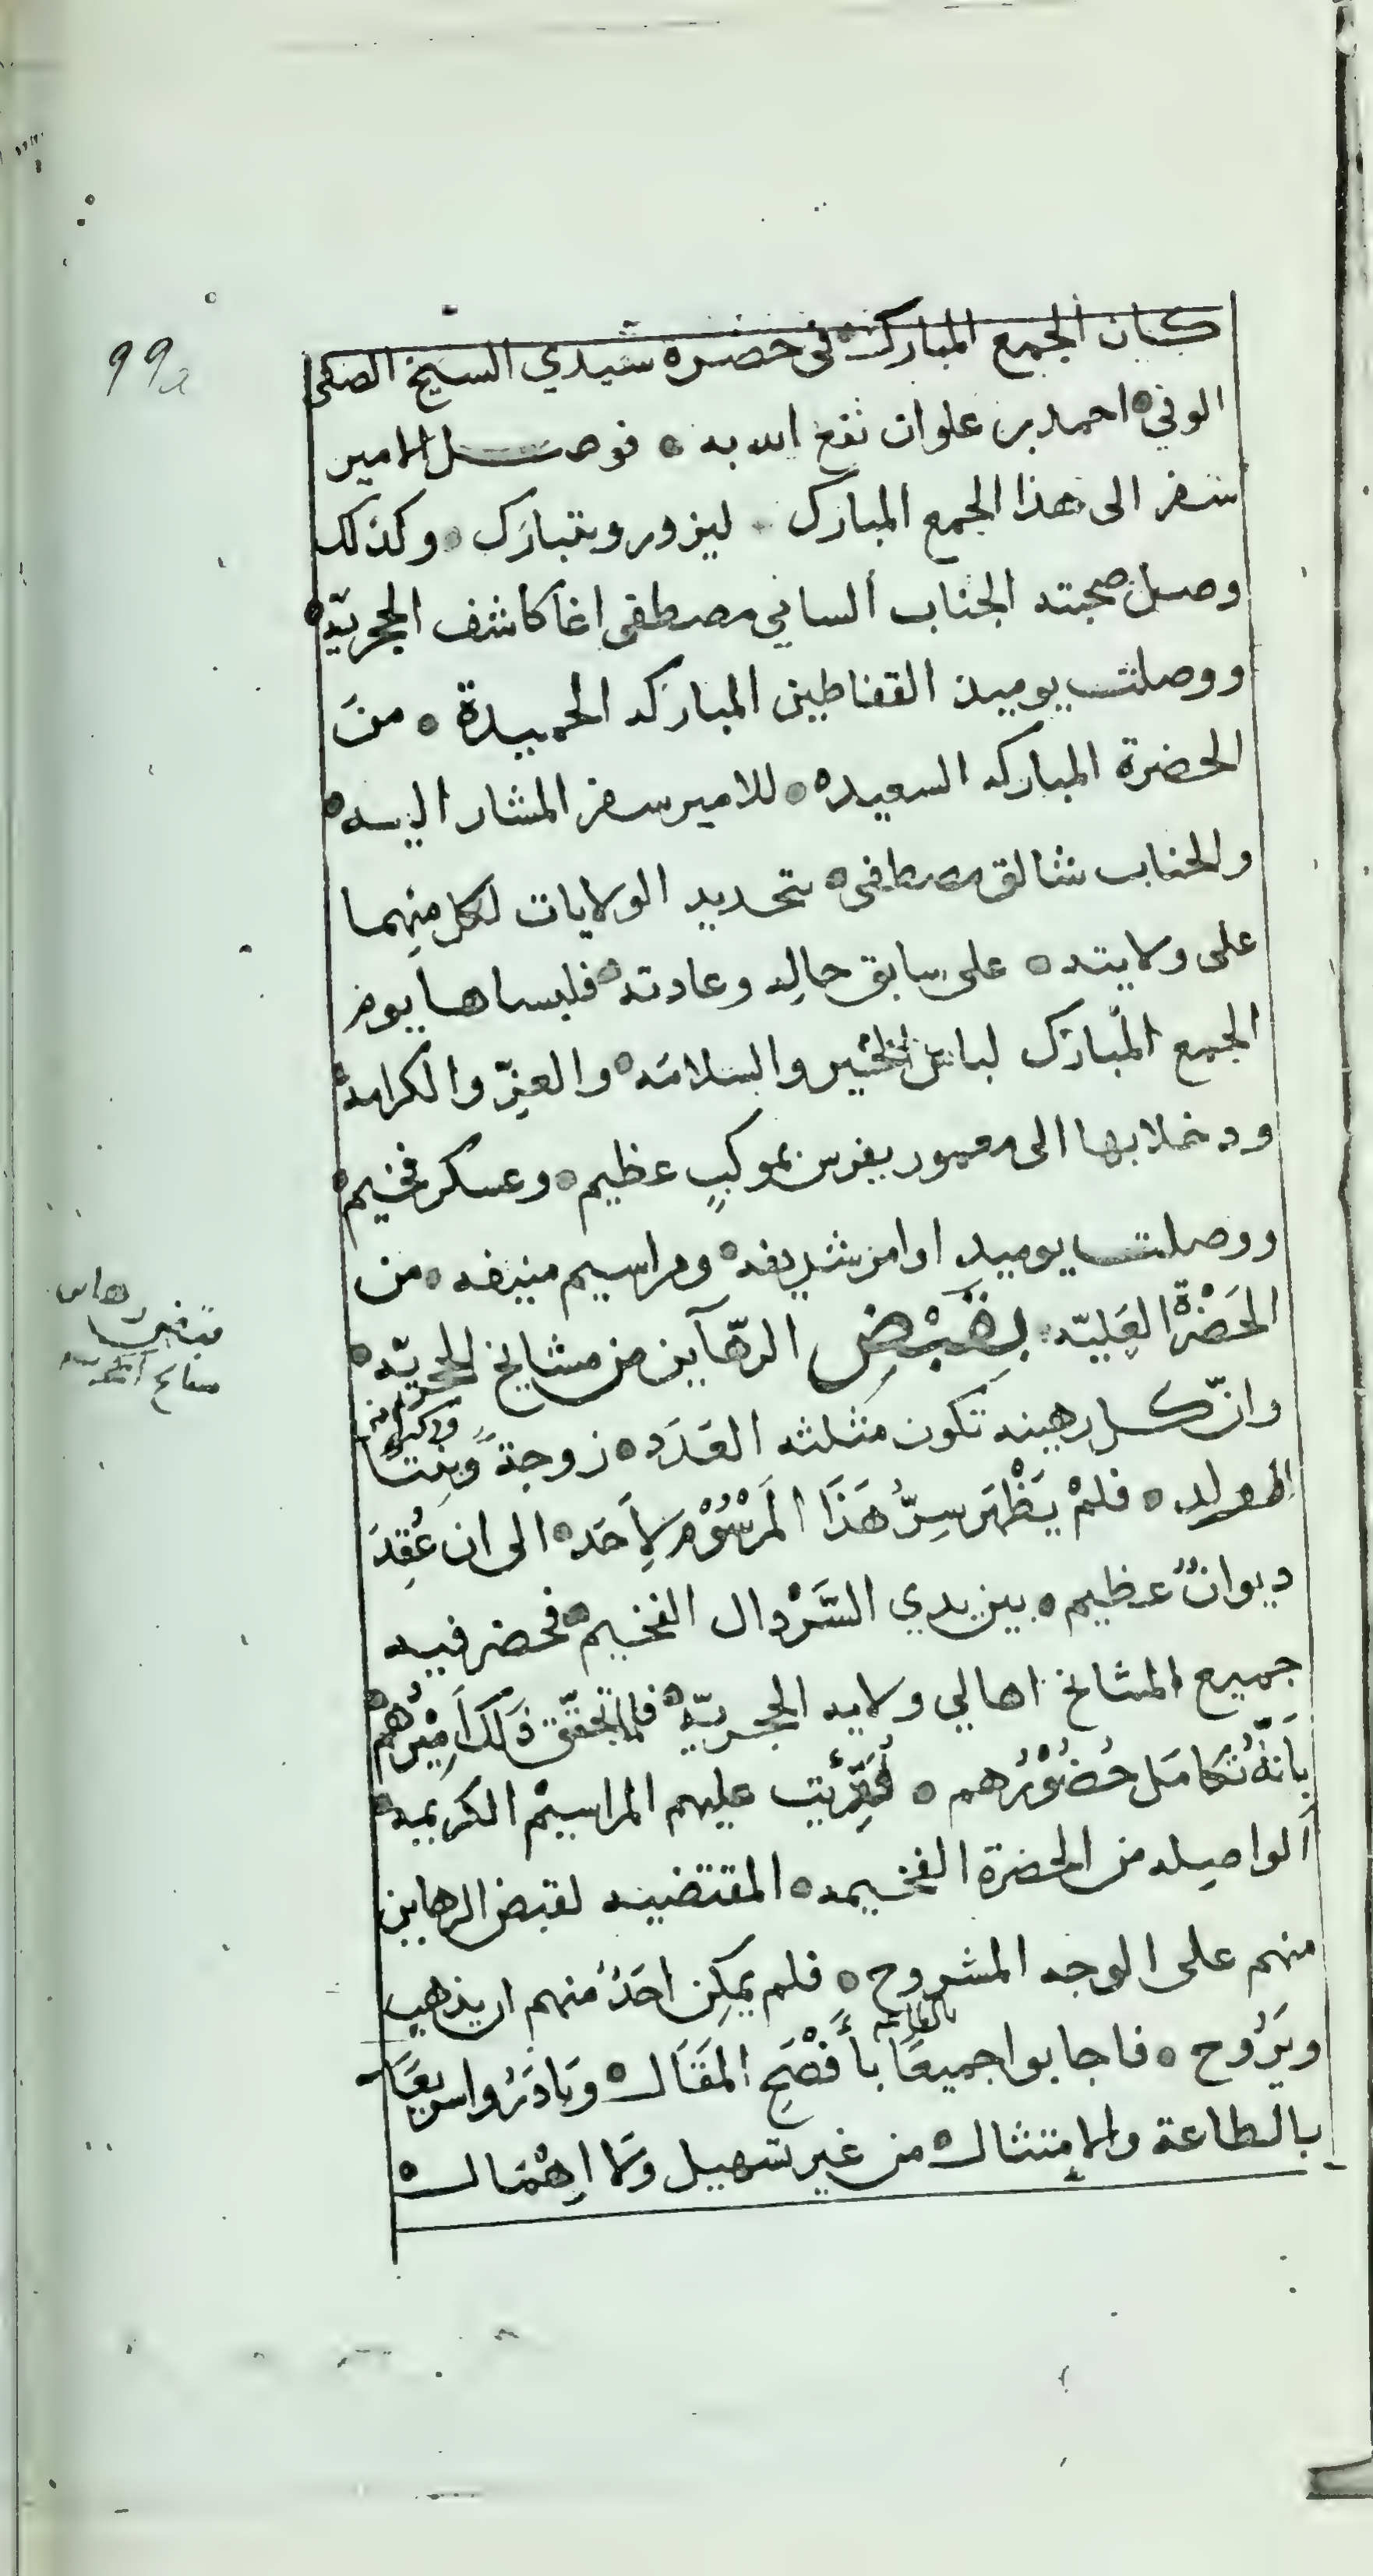 99a
كان الجمع المبارك في حضرة سيدي الشيخ الصفي
الوفي احمد بن علوان نفع الله به فوصل الامير
سفر الى هذا الجمع المبارك ليزور ويتبارك وكذلك
وصل صحبته الجناب السامي مصطفى اغا كاشف الحجريّه
ووصلت يوميذ القفاطين المباركه الحميدة من
الحضرة المباركه السعيده للامير سفر المشار اليه
والجناب مصطفى بتجديد الولايات لكل منهما
على ولايته على سابق حاله وعادته فلبساها يوم
الجمع المبارك لباس الخير والسلامه والعزّ والكرامه
ودخلا بها الى معمور يفرس بموكبٍ عظيم وعسكر فخيم
ووصلت يوميد اوامر شريفه ومراسيم منيفه من
الحَضْرة العَليّه بقَبْضِ الرهآين من مشايخ الحجريّه
وانّ كل رهينه تكون مثلثه العَدَد زوجة وبنتا
المولد فلمْ يَظْهَر سِرُّ هَذَا المَرْسُوْم لاِحَد الى ان عُقِدَ
ديوانٌ عظيم بين يدي السَّرْدال الفخيم فحضر فيه
جميع المشايخ اهالي ولايه الحجريّه فلما تحقّق ذلك اَمِيْرُهُم
بأنّه تكامَل حُضُوْرُهم فقُرِئت عليهم المراسيْم الكريمه
الواصِله من الحضرة الفخيمه المقتضيه لقبض الرهاين
منهم على الوجه المشروح فلم يمكِن احَدٌ منهم ان يذهب
ويَرُوح فاجابوا جميعًا بأَفْصَحِ المَقَال وبَادَرُوا سريعًا
بالطاعة والامتثال من غير تسهيل ولا اِهْمَال
قبض رهاين
مشايخ الحجريه